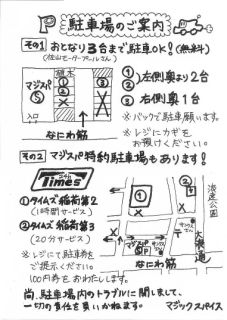 P 駐車場のご案内
その1 おとなり3台まで駐車OK!(無料)
(佐山モータープールさん)
植木
マジスパ
S
入口
①
②
③
なにわ筋
①②左側奥より2台
③右側奥1台
※バックで駐車願います。
※レジにカギをお預けください。
その2 マジスパ特約駐車場もあります!
24h
Times
①タイムズ稲荷第2
(1時間サービス)
②タイムズ稲荷第3
(20分サービス)
※レジにて駐車券をご提示ください。
100円券をおわたしします。
①
②
マジスパ
S P
サンクスさん
なにわ筋
大乗通
浪速公園
尚、駐車場内のトラブルに関しまして、
一切の責任を負いかねます。
マジックスパイス